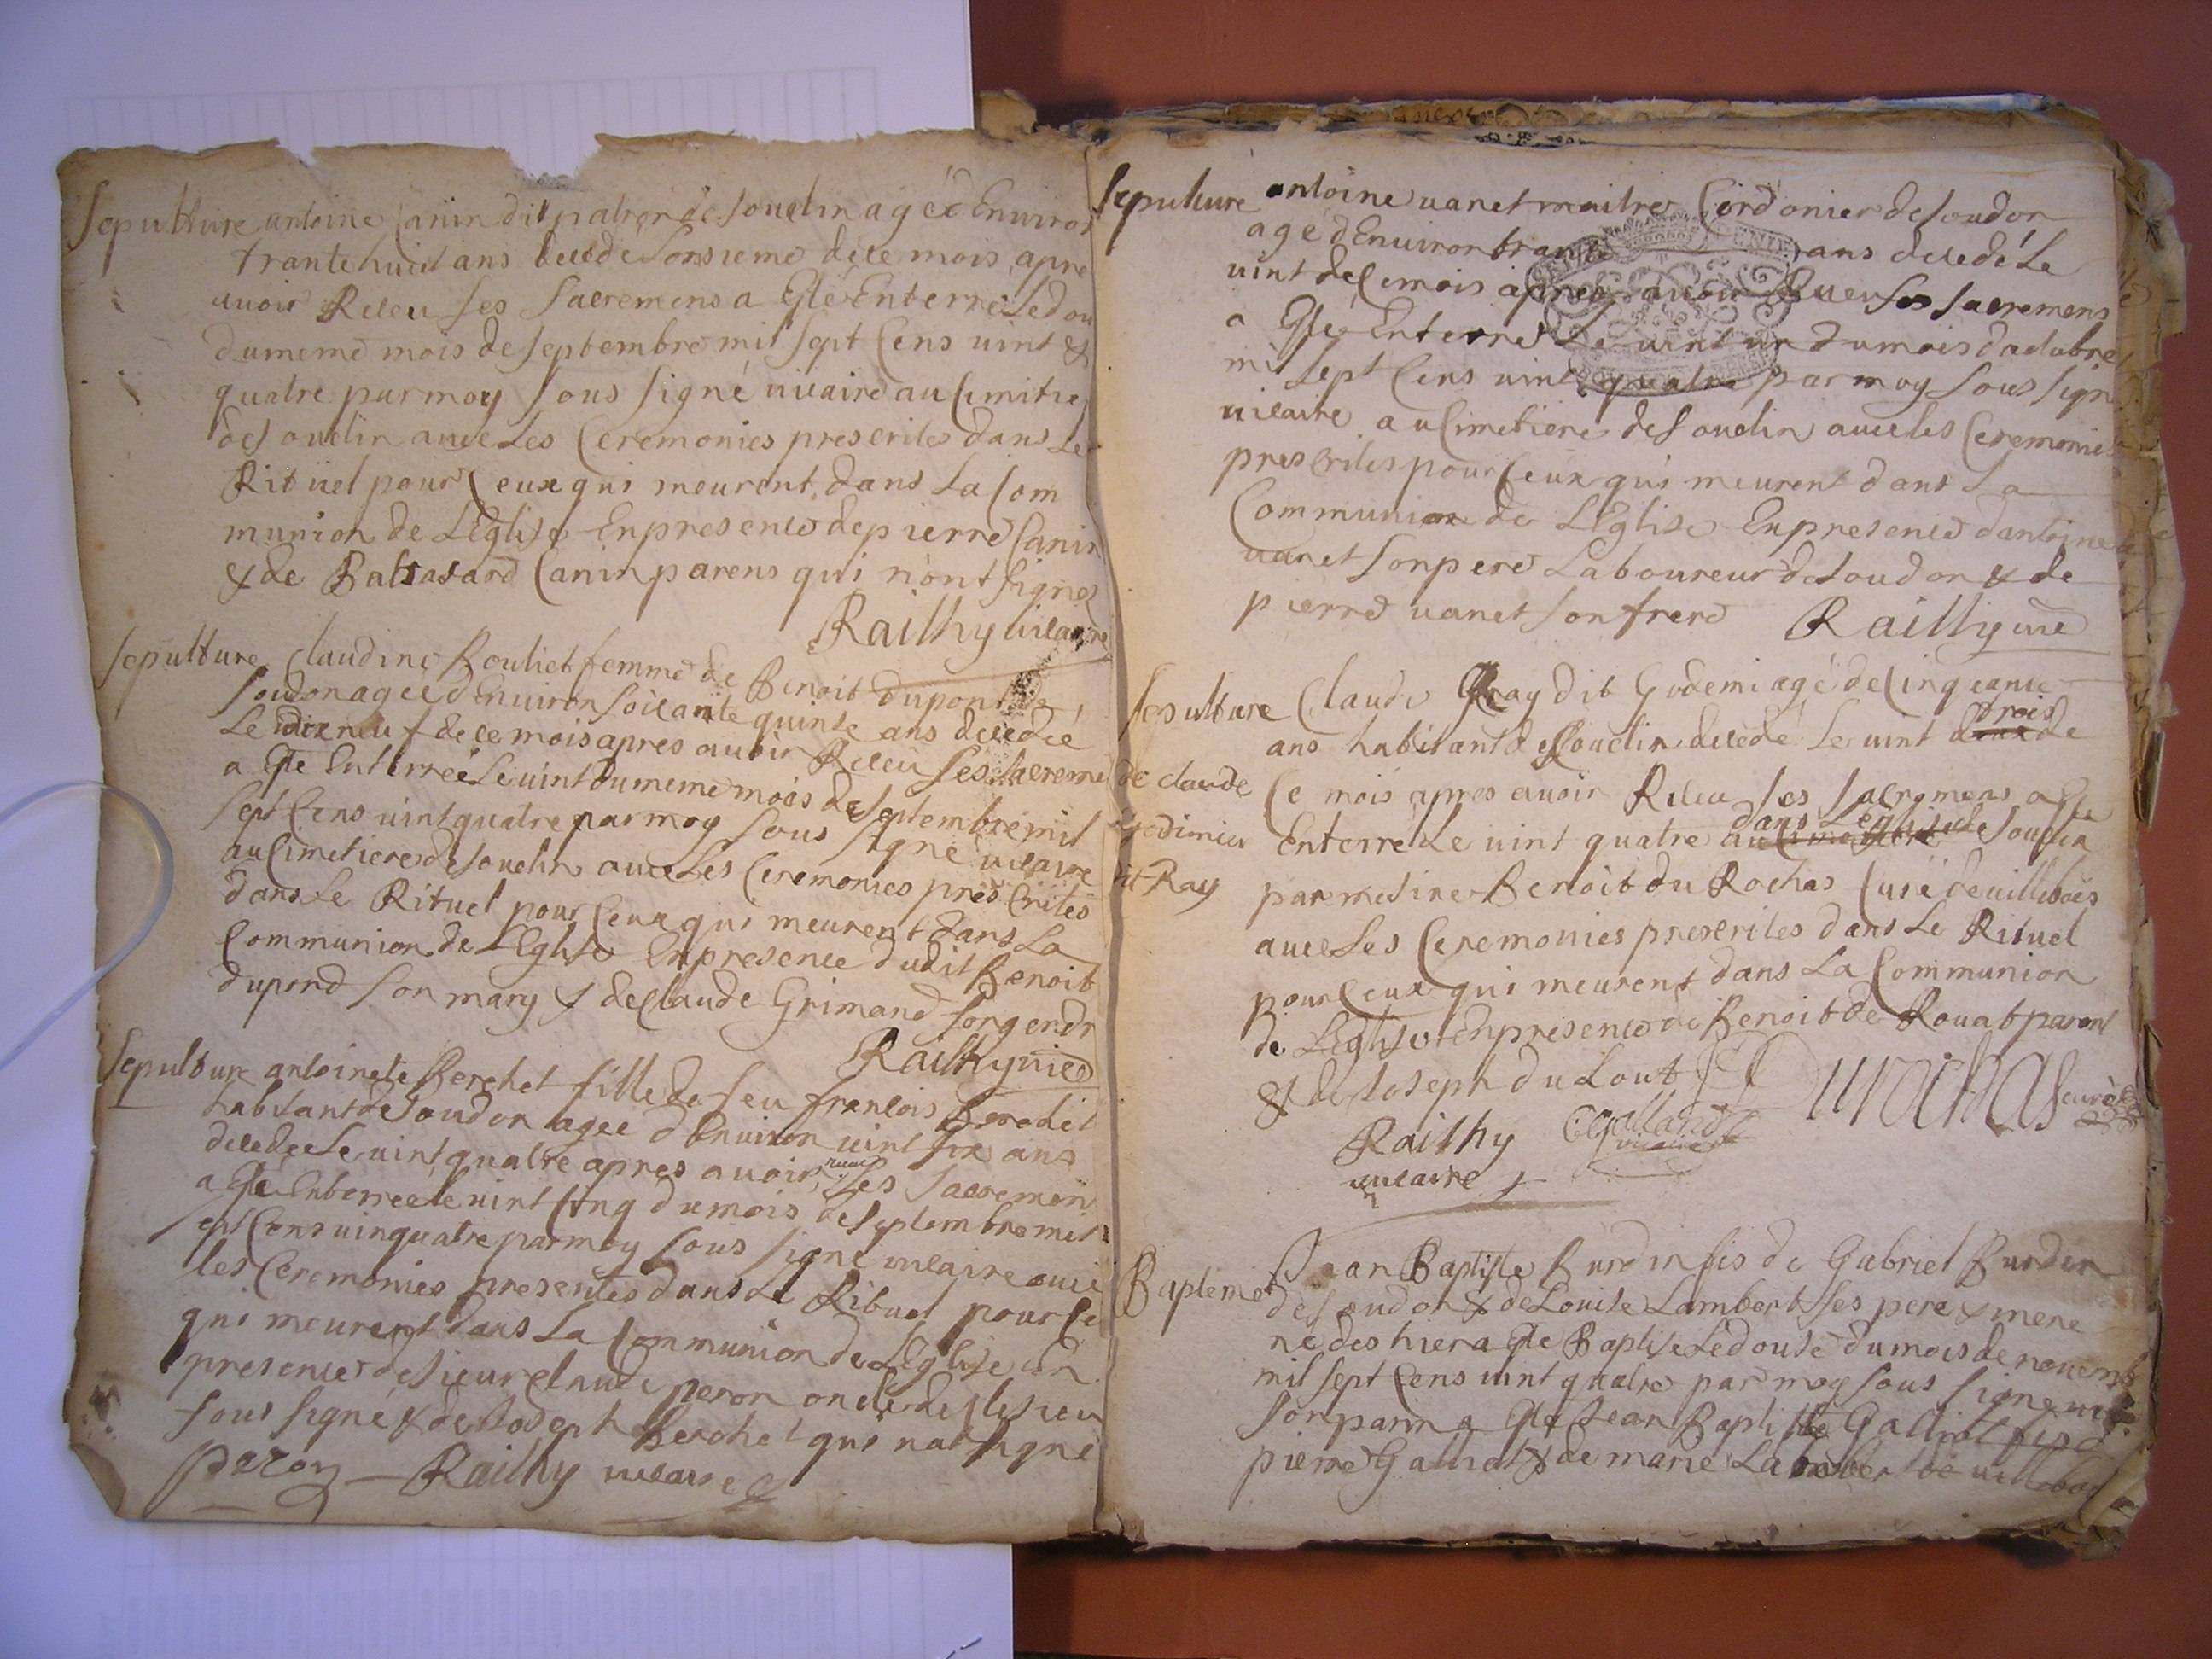 Sepulture antoine Canin dit patron de Souclin agée Environ
trante huit ans decede Lonsieme de ce mois apre
avoir Receu ses sacremens a Eté Enterré Le dou
du meme mois de septembre mil sept Cens vint &
quatre par moy sous signé vicaire au Cimitie
de Souclin avec Les Ceremonies prescrites dans Le
Rituel pour Ceux qui meurent dans La Com
munion de LEglise En presence de pierre Canin
& de Baltasard Canin parens qui n'ont signes
Railhy vicaire
Sepulture Claudine Bouliet femme de Benoit dupont de
Soudon agée d'Environ soicante quinse ans decedée
Le dix neuf de ce mois apres avoir Receu ses sacreme
a Eté Enterrée Le vint du meme mois de septembre mil
sept Cens vint quatre par moy sous signé vicaire
au Cimetiere de Souclin avec Les Ceremonies prescrites
dans Le Rituel pour Ceux qui meurent dans La
Communion de LEglise En presence dudit Benoit
dupond son mary & de Claude Grimand son gendr
Railhy vice
Sepulture antoinete Berchet fille de feu francois Berchet
habitant de Soudon agee d'Environ vint six ans
decedee Le vint quatre apres avoir receu ses sacremen
a Eté Enterreé le vint Cinq du mois de septembre mil
sept Cens vinquatre par moy sous signé vicaire avec
les Ceremonies presentes dans Le Rituel pour Ce
qui meurent dans La Communion de LEglise En
presence de sieur Claude peron oncle de
sous signé & de Joseph Berchet qui na signé
Peron Railhy vicaire
Sepulture antoine vanet maitre Cordonier de Soudon
agé d'Environ trante ans decedé Le
vint de Ce mois apres avoir Receu ses sacremens
a Eté Enterré Le vint un du mois d'actobre
mil sept Cens vint quatre par moy sous sign
vicaire au Cimetiere de Souclin avec les Ceremonies
prescrites pour Ceux qui meurent dans La
Communion de LEglise En presence d'antoine
vanet son pere Laboureur de Soudon & de
pierre vanet son frere Railly vice
Sepulture Claude Ray dit Godemi agé de Cinquante
ans habitant de Souclin decedé Le vint deux trois de
de claude Ce mois apres avoir Receu ses sacremens a Eté
godimier Enterré Le vint quatre au Cimetiere dans LEglise de Souclin
dit Ray par mesire Benoit du Rochas Curé de villebois
avec Les Ceremonies prescrites dans Le Rituel
pour Ceux qui meurent dans La Communion
de LEglise En presence de Benoit de Rouat parent
& de Joseph du Lout Durochas curé
Railhy Galland
vicaire vicaire
Bapteme Jean Baptiste Burdin fis de Gabriel Burdin
de Soudon & de Louise Lambert ses pere & mere
né des hier a Eté Baptisé Le douse du mois de novemb
mil sept Cens vint quatre par moy sous signé
son parin a Eté Jean Baptiste Galliot fis d
pierre Galliot & de marie Lambert de villeboi